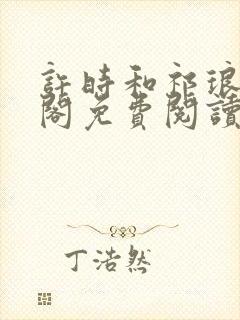 許時和祁琅
閣免費閱讀
丁浩然